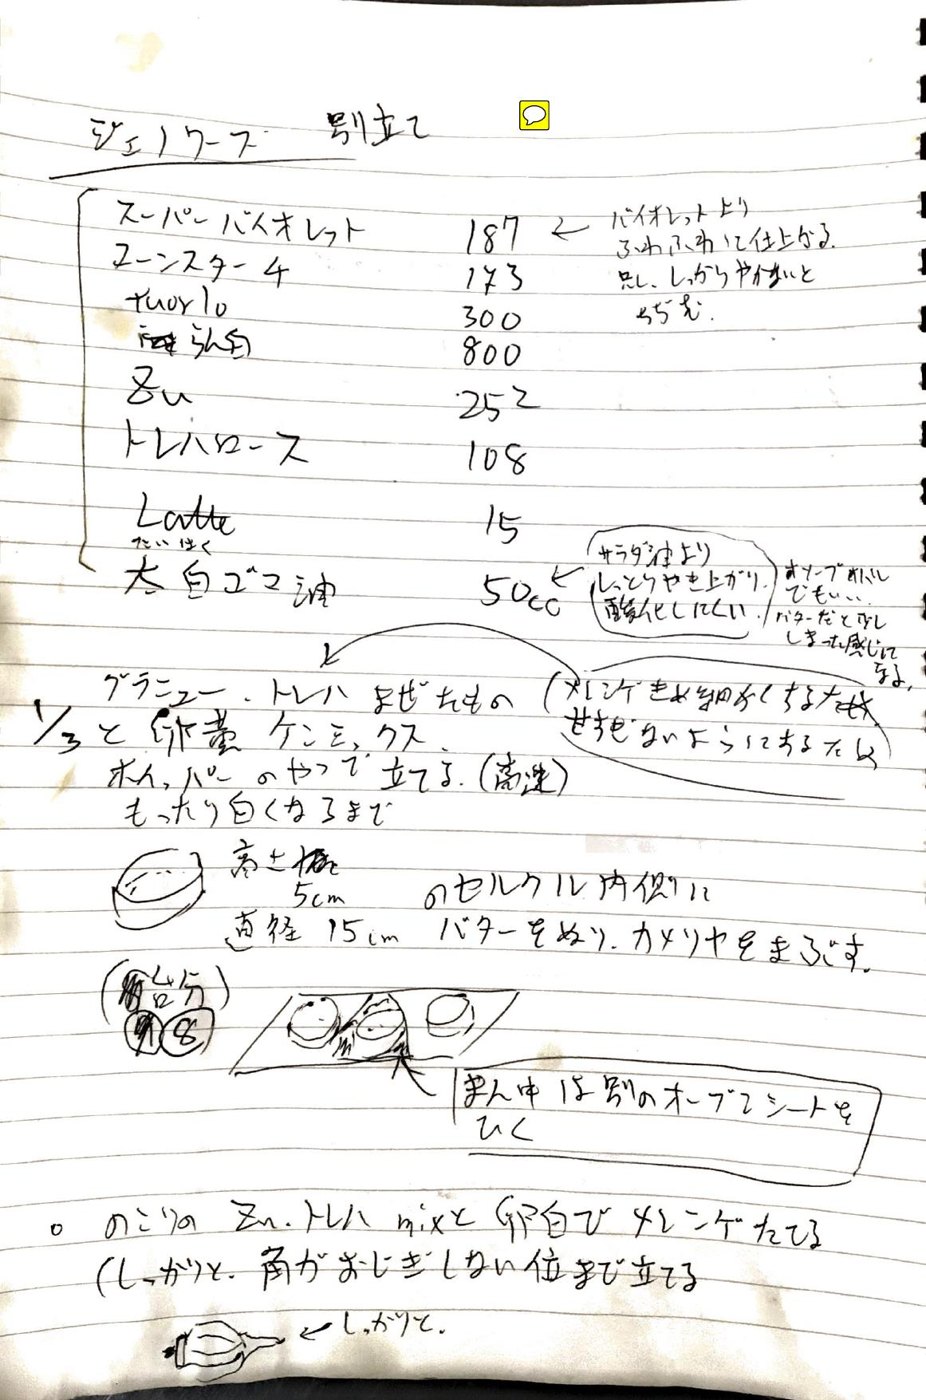 ジェノワーズ 別立て
スーパーバイオレット 187 ← バイオレットより
ふわふわに仕上がる。
只し、しっかりやかないと
ちぢむ.
コーンスター4 173
tuorlo 300
らん白 800
Zu 252
トレハロース 108
Latte 15
たいはく
太白ゴマ油 50cc ←
サラダ油より
しっとりやき上がり.
酸化しにくい.
オリーブオイル
でもいい.
バターだと少し
しまった感じに
なる.
グラニュー.トレハ まぜたもの (メレンゲきめ細かくするため.
1/3 と 卵黄 ケンミックス.
ホイッパーのやつで立てる.(高速)
もったり白くなるまで
高さ
5cm のセルクル内側に
直径 15cm バターをぬり、カメリヤをまぶす。
(台分)
8
まん中は別のオーブンシートを
ひく
○ のこりの Zu.トレハ mixと卵白でメレンゲたてる
(しっかりと、角がおじぎしない位まで立てる
← しっかりと.